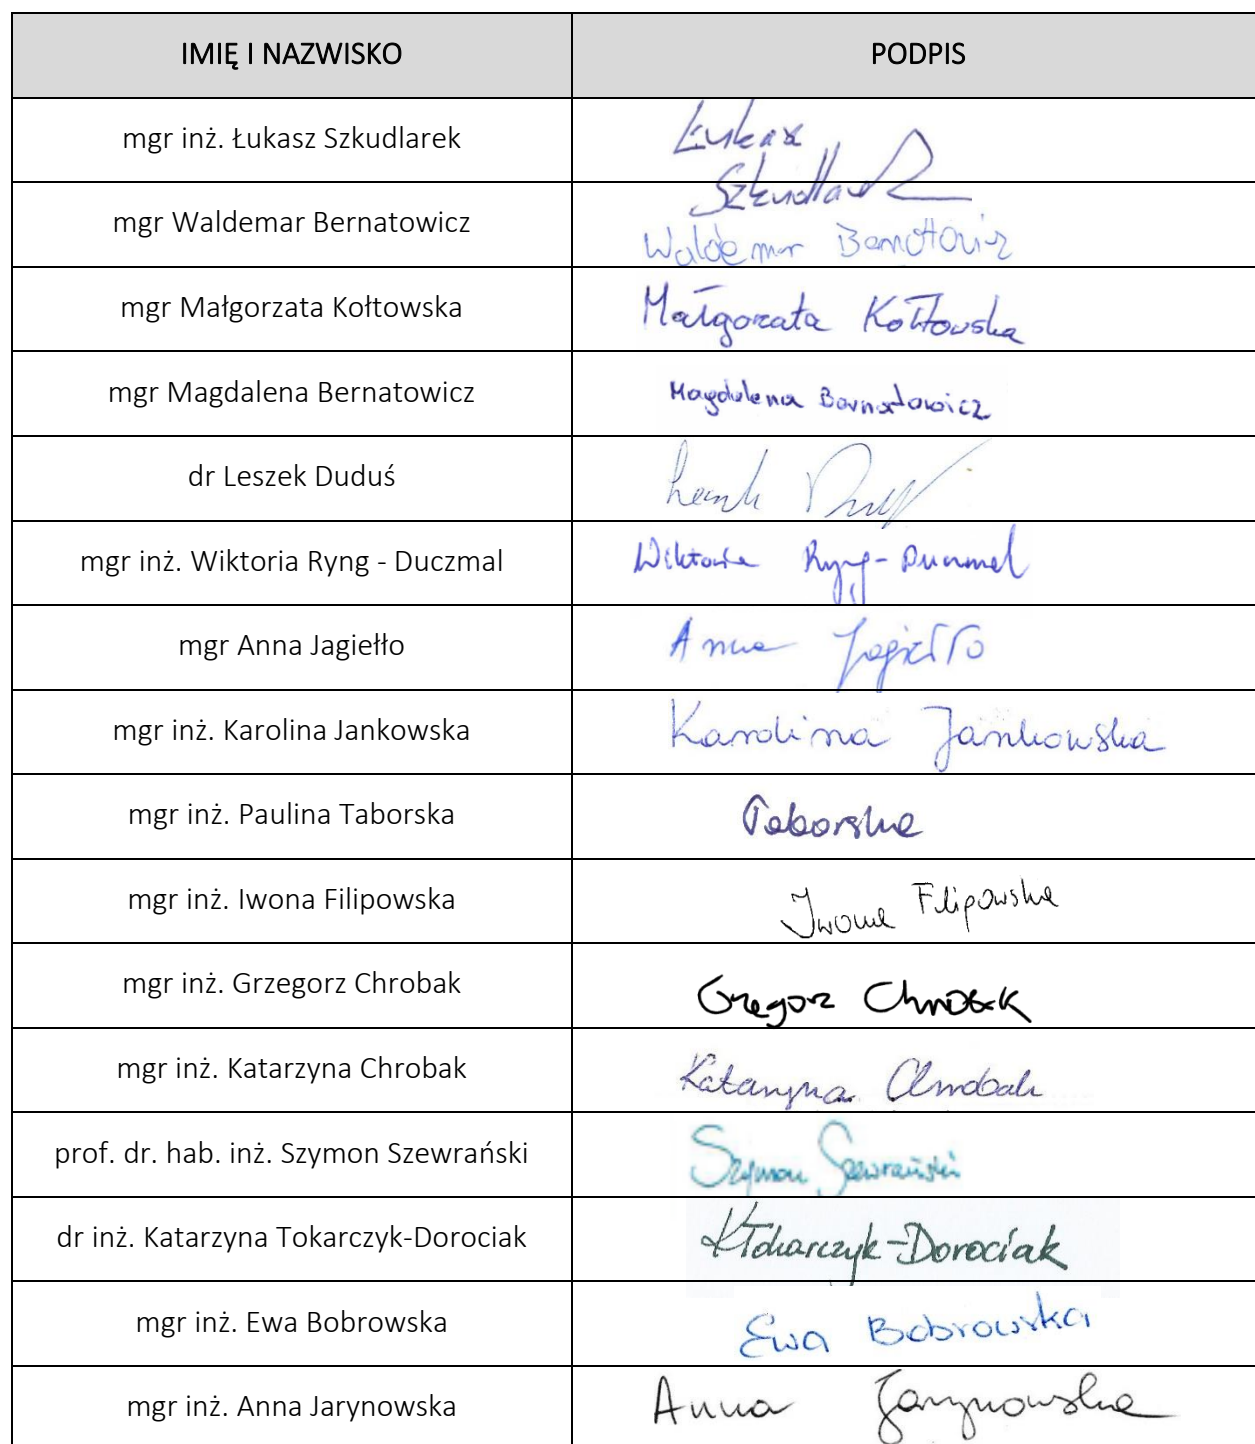 IMIĘ I NAZWISKO PODPIS
mgr inż. Łukasz Szkudlarek Łukasz
Szkudlarek
mgr Waldemar Bernatowicz Waldemar Bernatowicz
mgr Małgorzata Kołtowska Małgorzata Kołtowska
mgr Magdalena Bernatowicz Magdalena Bernatowicz
dr Leszek Duduś Leszek Duduś
mgr inż. Wiktoria Ryng - Duczmal Wiktoria Ryng-Duczmal
mgr Anna Jagiełło Anna Jagiełło
mgr inż. Karolina Jankowska Karolina Jankowska
mgr inż. Paulina Taborska Taborska
mgr inż. Iwona Filipowska Iwona Filipowska
mgr inż. Grzegorz Chrobak Grzegorz Chrobak
mgr inż. Katarzyna Chrobak Katarzyna Chrobak
prof. dr. hab. inż. Szymon Szewrański Szymon Szewrański
dr inż. Katarzyna Tokarczyk-Dorociak KTokarczyk-Dorociak
mgr inż. Ewa Bobrowska Ewa Bobrowska
mgr inż. Anna Jarynowska Anna Jarynowska